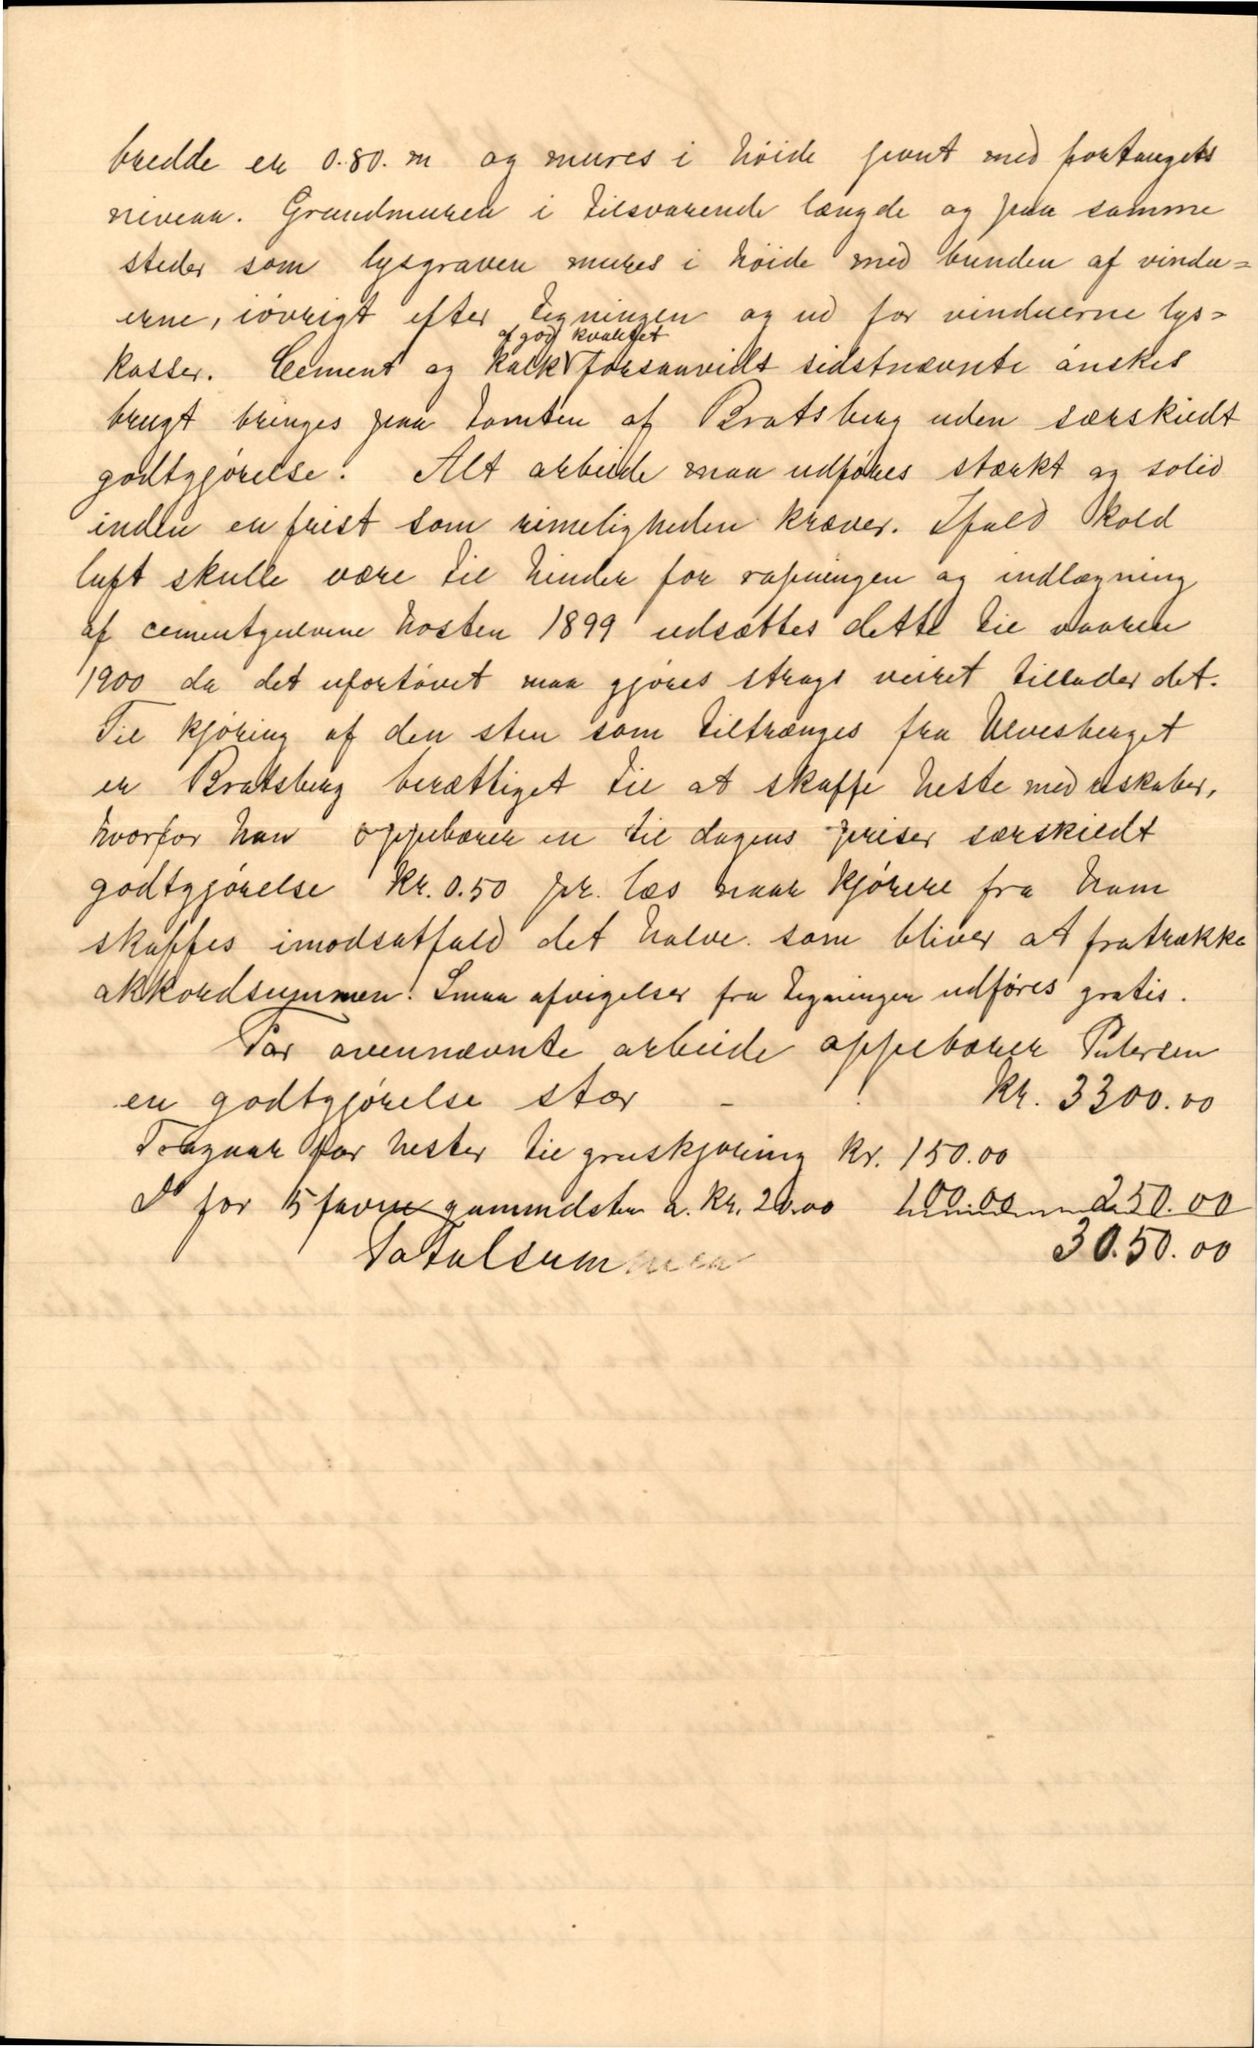 bredde er 0.80. m og mures i höide jevnt med fortaugets
niveau. Grundmuren i tilsvarende længde og paa samme
steder som lysgraven mures i höide med bunden af vindu=
erne, iövrigt efter tegningen og ud for vinduerne lys=
af god kvalitet
kasser. Cement og kalk forsaavidt sidstnævnte önskes
brugt bringes paa tomten af Bratsberg uden særskildt
godtgjörelse. Alt arbeide maa udföres stærkt og solid
inden en frist som rimeligheden kræver. Ifald kold
luft skulle være til hinder for rapningen og indlægning
af cementgulvene hösten 1899 udsættes dette til vaaren
1900 da det ufortövet maa gjöres strags veiret tillader det.
Til kjöring af den sten som tiltrænges fra Ulvesberget
er Bratsberg berættiget til at skaffe heste med redskaber,
hvorfor han oppebærer en til dagens priser særskildt
godtgjörelse Kr. 0.50 pr. læs naar kjörere fra ham
skaffes imodsatfald det halve som bliver at fratrække
akkordsummen. Smaa afvigelser fra tegningen udföres gratis.
For ovennævnte arbeide oppebærer Petersen
en godtgjörelse stor - Kr. 3300.00
Fragaar for hester til gruskjöring Kr. 150.00
Do for 5 favne gammelsten a. Kr. 20.00 100.00 250.00
Totalsummen 30.50.00